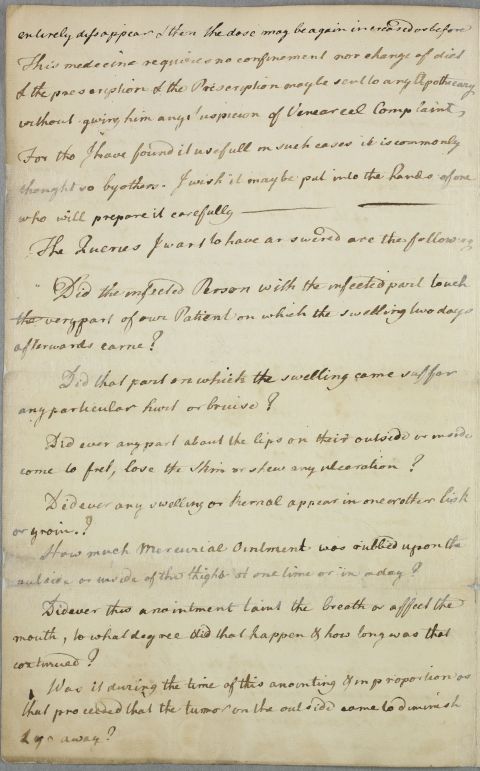 entirely dissappear & then the dose may be again increased as before
This medecine requires no confinement nor change of diet
& the prescription & the Prescription may be sent to any Apothecary
without giving him any suspicion of Venereeel Complaint,
For tho I have found it usefull in such cases it is commonly
thought so by others. I wish it may be put into the hands of one
who will prepare it carefully
The Queries I want to have answered are the following
Did the infected Person with the infected part touch
the very part of our Patient on which the swelling two days
afterwards came?
Did that part on which the swelling came suffer
any particular hurt or bruise?
Did ever any part about the lips on their outside or inside
come to fret, lose the skin or shew any ulceration?
Did ever any swelling or kernal appear in one or other lisk
or groin.?
How much Mercurial Ointment was rubbed upon the
outside or inside of the thighs at one time or in a day?
Did ever this anointment taint the breath or affect the
mouth, to what degree did that happen & how long was that
continued?
Was it during the time of this anointing & in proportion as
that proceeded that the tumor on the outside came to diminish
& go away?